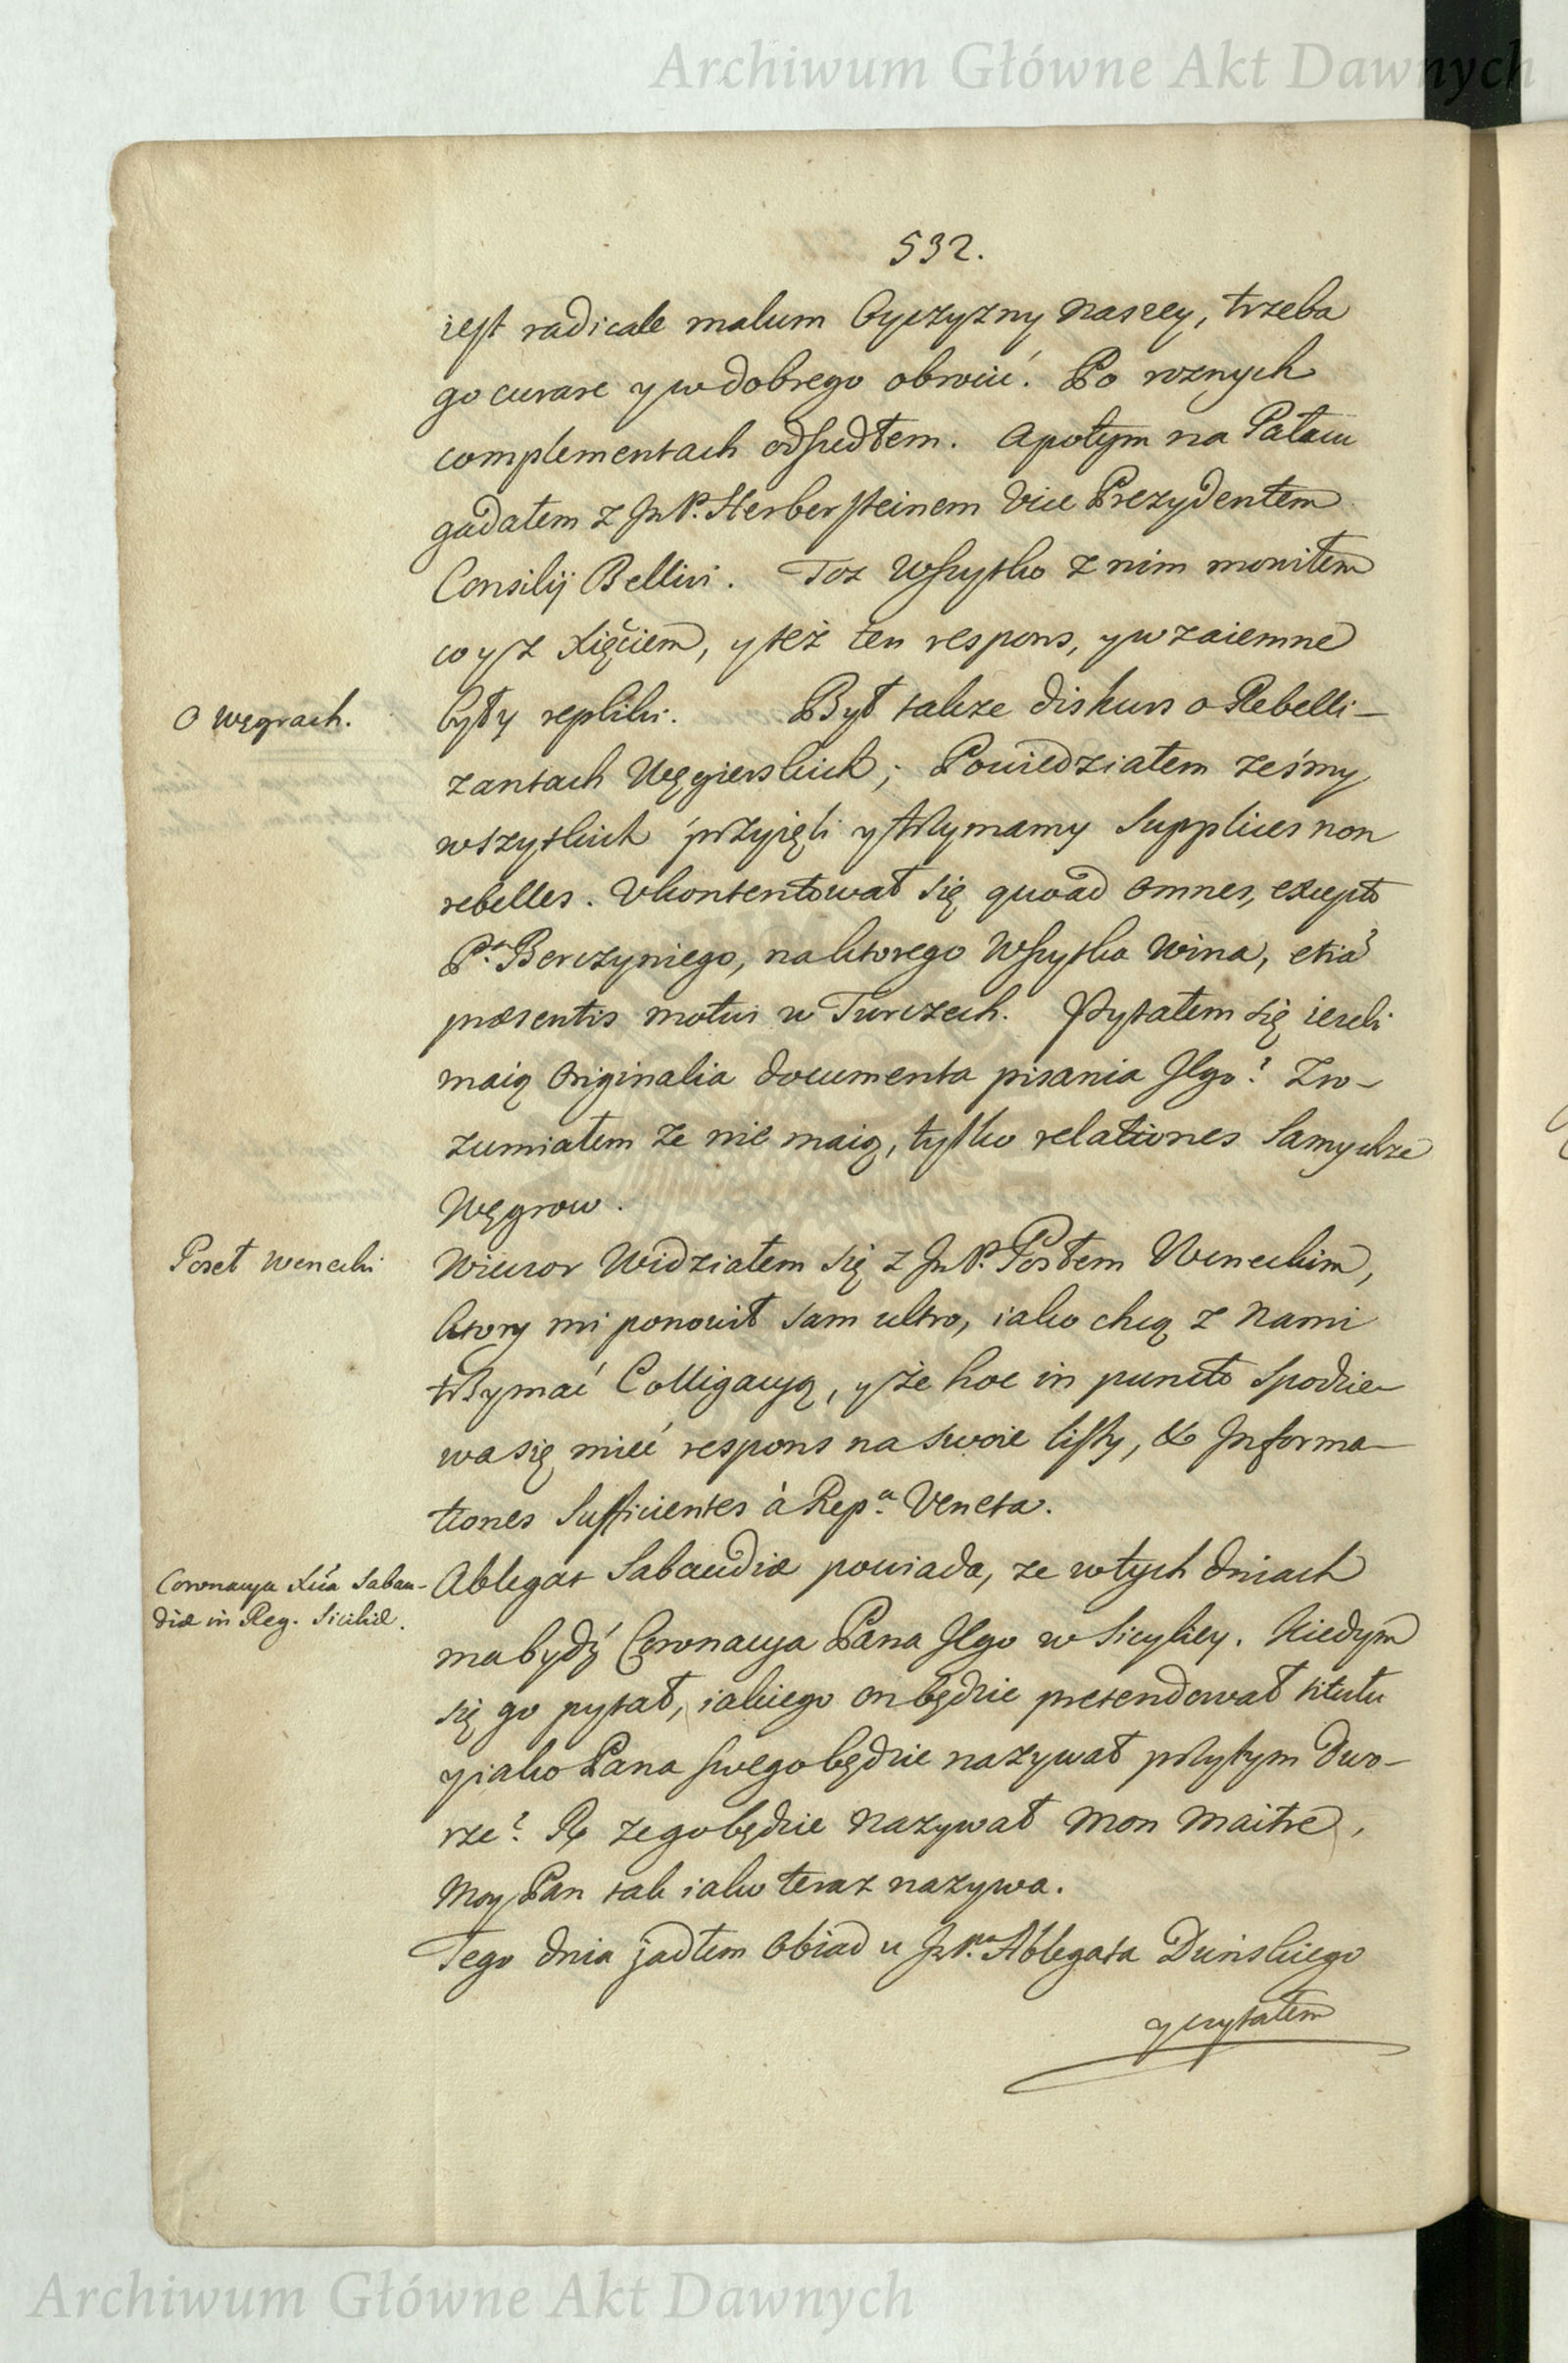 Archiwum Główne Akt Dawnych
532.
iest radicale malum Oyczyzny naszey, trzeba
go curare y w dobrego obrocić. Po roznych
complementach odszedłem. A potym na Pałacu
gadałem z JmP. Herbersteinem Vice Prezydentem
Consilij Bellici. Toż wszytko z nim mowiłem
co y z Xięciem, y też ten respons, y wzaiemne
O Węgrach.
były repliki. Był także diskurs o Rebelli-
zantach Węgierskich; Powiedziałem żeśmy
wszytkich przyięli y trzymamy supplices non
rebelles. Ukontentował się quoad omnes, excepto
Pa. Berczyniego, na ktorego wszytka wina, etia
præsentis motus w Turczech. Pytałem się ieżeli
maią originalia documenta pisania Jego? Zro-
zumiałem że nie maią, tylko relationes samychże
Węgrow.
Poseł Wenecki
Wieczor widziałem się z JmP. Posłem Weneckim,
ktory mi ponowił sam ultro, iako chcą z nami
trzymać Colligacyą, y że hoc in puncto spodzie-
wa się mieć respons na swoie listy, & Informa-
tiones sufficientes à Repa. Veneta.
Coronacya Xcia Sabau-
diæ in Reg. Siciliæ.
Ablegat Sabaudiæ powiada, że w tych dniach
ma bydź Coronacya Pana Jego w Sicyliey. Kiedym
się go pytał, iakiego on będzie pretendował titułu
y iako Pana swego będzie nazywał przy tym Dwo-
rze? Rx że go będzie nazywał Mon Maitre,
Moy Pan tak iako teraz nazywa.
Tego dnia jadłem obiad u JmPa. Ablegata Duńskiego
y czytałem
Archiwum Główne Akt Dawnych